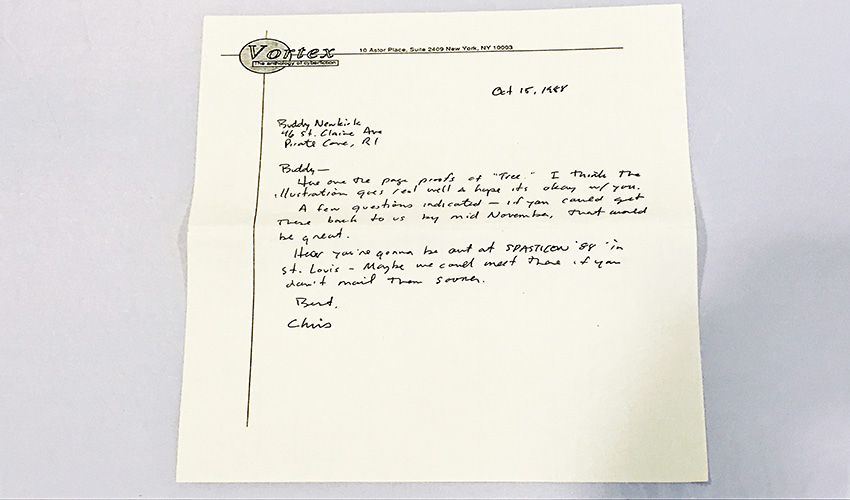 Vortex
The anthology of cyberfiction
10 Astor Place, Suite 2409 New York, NY 10003
Oct 15, 1988
Buddy Newkirk
46 St. Claire Ave
Pirate Cove, RI
Buddy—
Here are the page proofs of "Tree." I think the
illustration goes real well & hope its okay w/ you.
A few questions indicated — if you could get
these back to us by mid November, that would
be great.
Hear you're gonna be out at SPASTICON '88 in
St. Louis - Maybe we could meet there if you
don't mail them sooner.
Best,
Chris